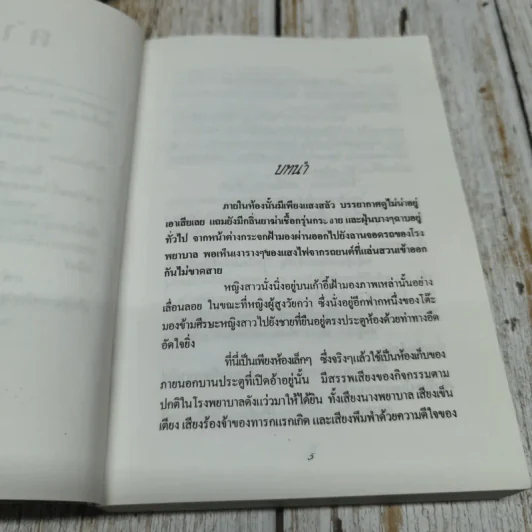 บทนำ
ภายในห้องนั้นมีเพียงแสงสลัว บรรยากาศดูไม่น่าอยู่
เอาเสียเลย แถมยังมีกลิ่นยาฆ่าเชื้อกรุ่นกระจาย และฝุ่นบางๆฉาบอยู่
ทั่วไป จากหน้าต่างกระจกฝ้ามองผ่านออกไปยังลานจอดรถของโรง
พยาบาล พอเห็นเงารางๆของแสงไฟจากรถยนต์ที่แล่นสวนเข้าออก
กันไม่ขาดสาย
หญิงสาวนั่งนิ่งอยู่บนเก้าอี้เฝ้ามองภาพเหล่านั้นอย่าง
เลื่อนลอย ในขณะที่หญิงผู้สูงวัยกว่า ซึ่งนั่งอยู่อีกฟากหนึ่งของโต๊ะ
มองข้ามศีรษะหญิงสาวไปยังชายที่ยืนอยู่ตรงประตูห้องด้วยท่าทางอึด
อัดใจยิ่ง
ที่นี่เป็นเพียงห้องเล็กๆ ซึ่งจริงๆแล้วใช้เป็นห้องเก็บของ
ภายนอกบานประตูที่เปิดอ้าอยู่นั้น มีสรรพเสียงของกิจกรรมตาม
ปกติในโรงพยาบาลดังแว่วมาให้ได้ยิน ทั้งเสียงนางพยาบาล เสียงเข็น
เตียง เสียงร้องจ้าของทารกแรกเกิด และเสียงพึมพำด้วยความดีใจของ